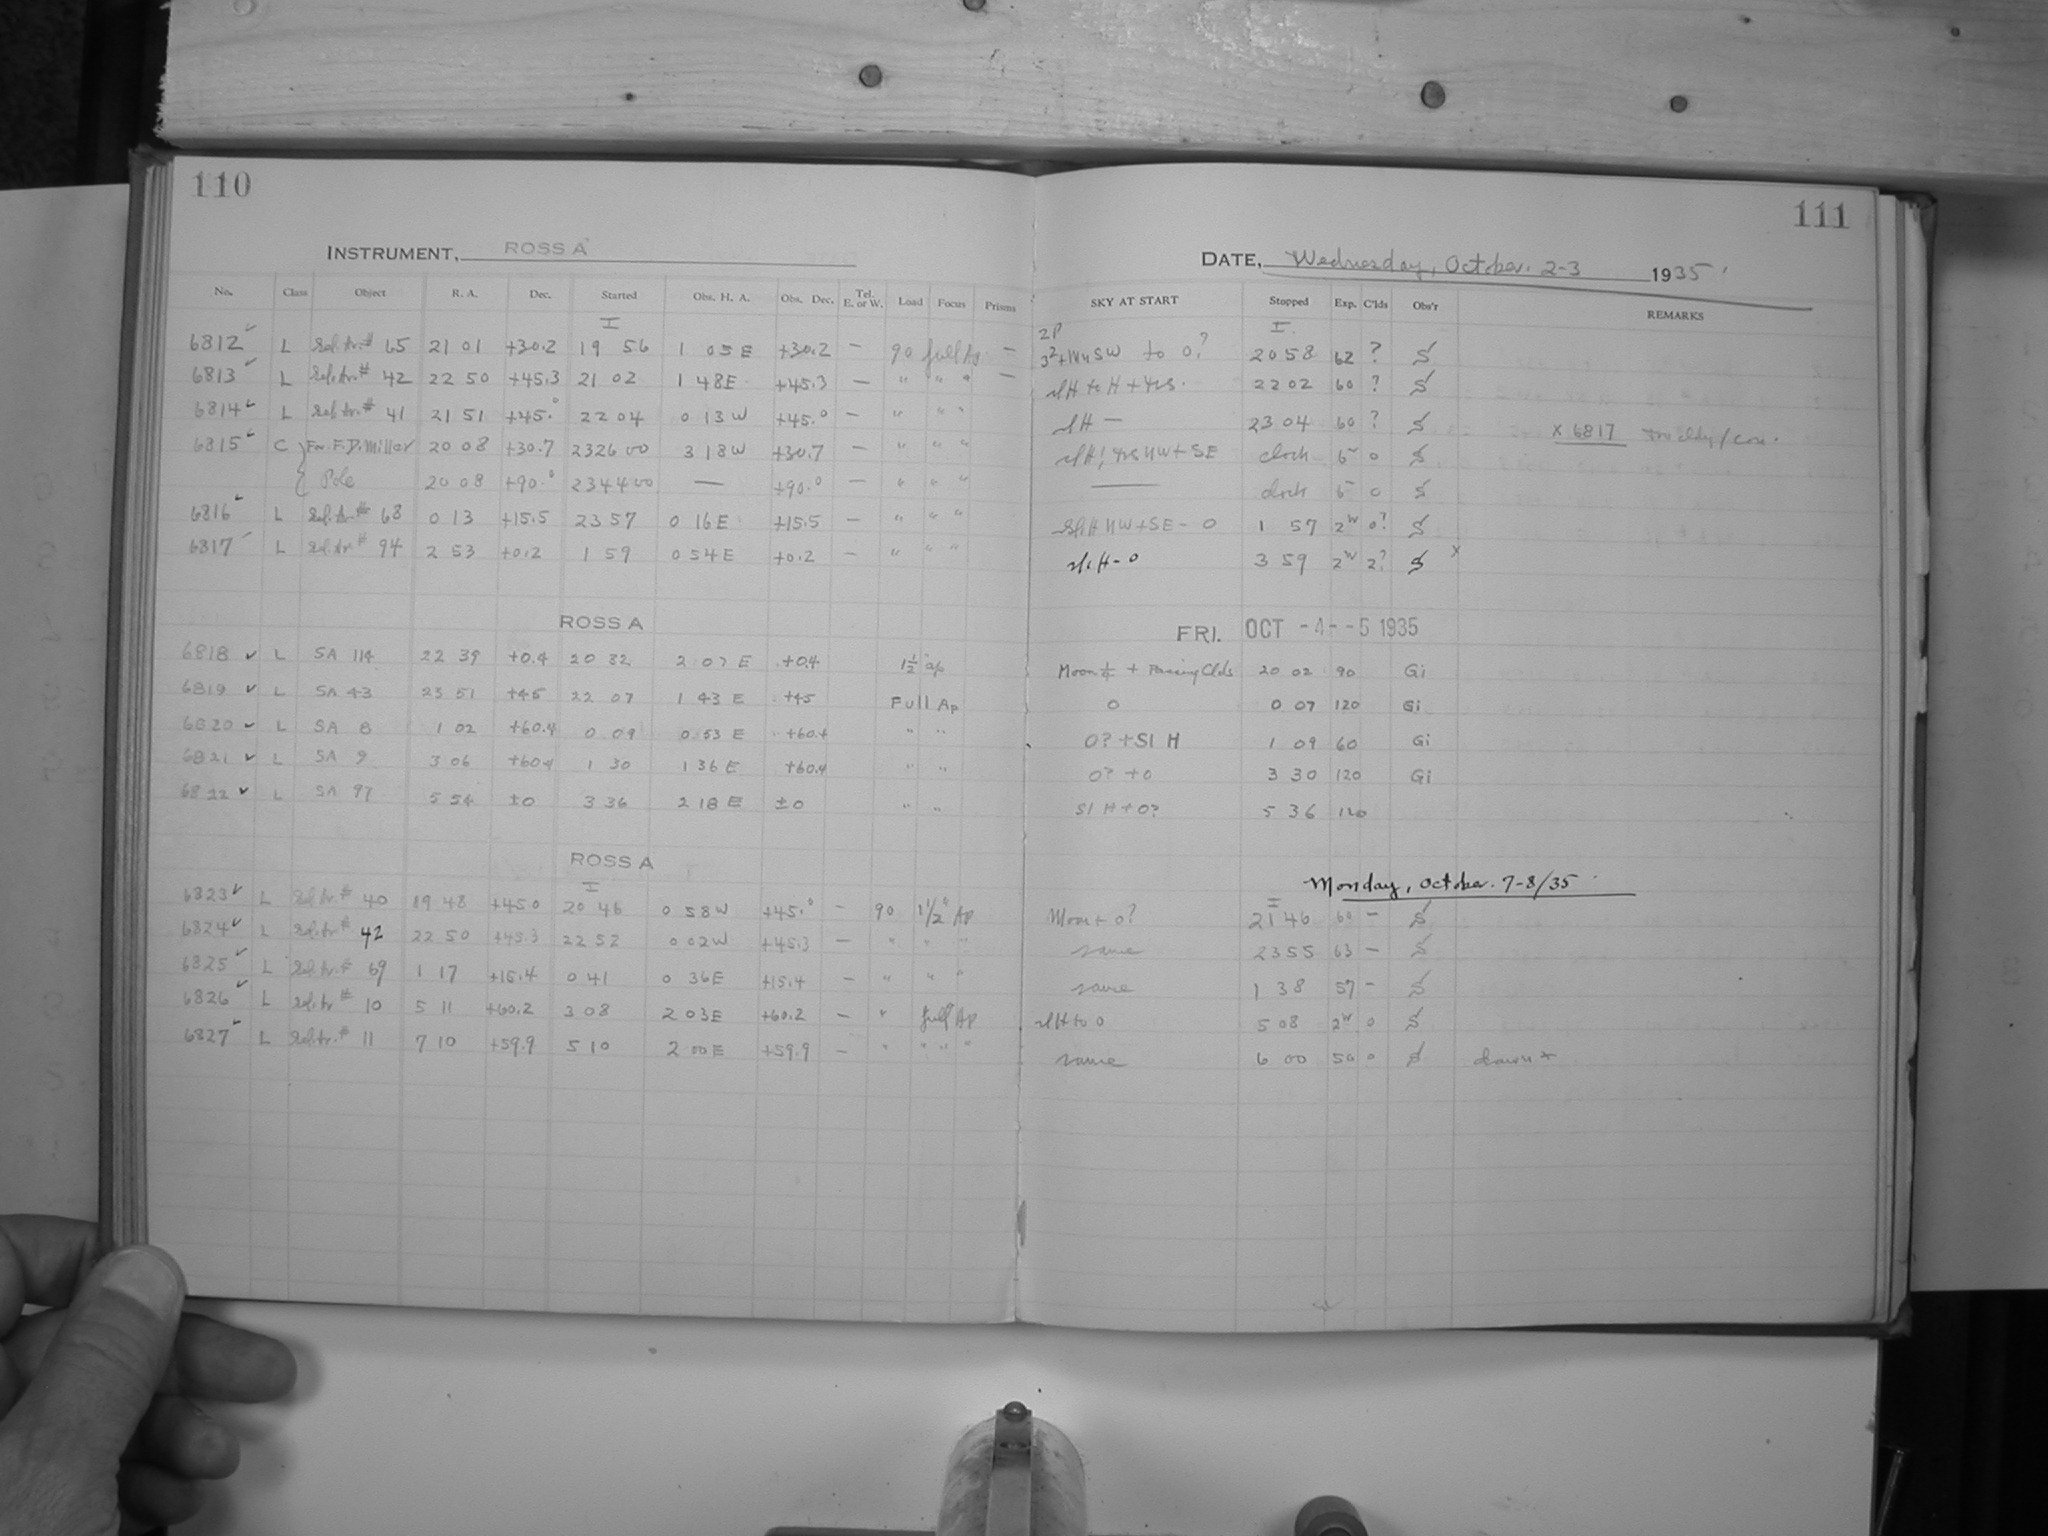 110
111
INSTRUMENT, ROSS A
DATE, Wednesday, October. 2-3 1935
No. Class Object R. A. Dec. Started Obs. H. A. Obs. Dec. Tel. E. or W. Load Focus Prisms SKY AT START Stopped Exp. C'lds Obs'r REMARKS
I 2P I
6812 L Sel. Ar. # 65 21 01 +30.2 19 56 1 05 E +30.2 — 90 full Ap — to 0? 20 58 62 ? S
6813 L Sel. Ar. # 42 22 50 +45.3 21 02 1 48 E +45.3 — " " " — 22 02 60 ? S
6814 L Sel. Ar. # 41 21 51 +45.0 22 04 0 13 W +45.0 — " " " slH — 23 04 60 ? S x 6817
6815 C For F. D. Miller 20 08 +30.7 23 26 00 3 18 W +30.7 — " " " clock 5 0 S
Pole 20 08 +90.0 23 44 00 — +90.0 — " " " — clock 5 0 S
6816 L Sel. Ar. # 68 0 13 +15.5 23 57 0 16 E +15.5 — " " " SlH NW+SE - 0 1 57 2 0? S
6817 L Sel. Ar. # 94 2 53 +0.2 1 59 0 54 E +0.2 — " " " sl. H - 0 3 59 2 2? S x
ROSS A FRI. OCT -4--5 1935
6818 L SA 114 22 39 +0.4 20 32 2 07 E +0.4 1½" ap Moon + Passing Clds 20 02 90 Gi
6819 L SA 43 23 51 +45 22 07 1 43 E +45 Full Ap 0 0 07 120 Gi
6820 L SA 8 1 02 +60.4 0 09 0 53 E +60.4 " " 0? + Sl H 1 09 60 Gi
6821 L SA 9 3 06 +60.4 1 30 1 36 E +60.4 " " 0? + 0 3 30 120 Gi
6822 L SA 97 5 54 ±0 3 36 2 18 E ±0 " " Sl H + 0? 5 36 120
ROSS A Monday, October. 7-8/35
I I
6823 L Sel. Ar. # 40 19 48 +45.0 20 46 0 58 W +45.0 — 90 1½" Ap Moon + 0? 21 46 60 — S
6824 L Sel. Ar. # 42 22 50 +45.3 22 52 0 02 W +45.3 — " " " same 23 55 63 — S
6825 L Sel. Ar. # 69 1 17 +15.4 0 41 0 36 E +15.4 — " " " same 1 38 57 — S
6826 L Sel. Ar. # 10 5 11 +60.2 3 08 2 03 E +60.2 — " full Ap slH to 0 5 08 2 0 S
6827 L Sel. Ar. # 11 7 10 +59.9 5 10 2 00 E +59.9 — " " " " same 6 00 50 0 S dawn *